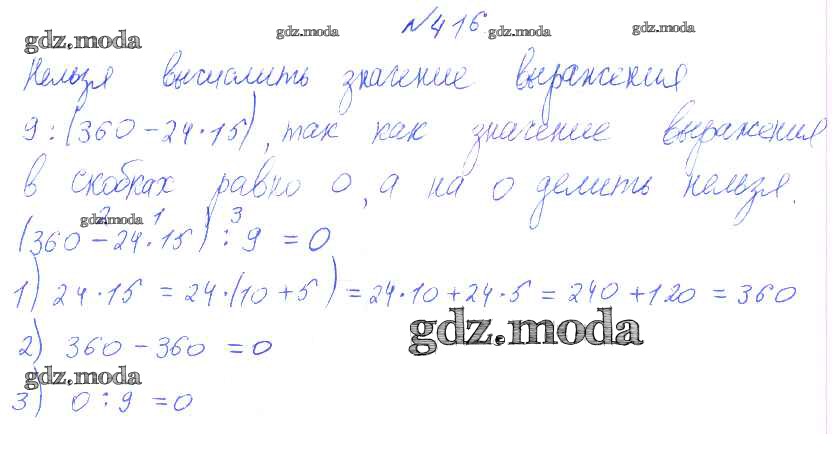 №416
gdz.moda gdz.moda gdz.moda
Нельзя вычислить значение выражения
9:(360-24·15), так как значение выражения
gdz.moda gdz.moda
в скобках равно 0, а на 0 делить нельзя.
gdz.moda
2 1 3
(360-24·15):9=0
1) 24·15=24·(10+5)=24·10+24·5=240+120=360
gdz.moda
2) 360-360=0
gdz.moda
3) 0:9=0